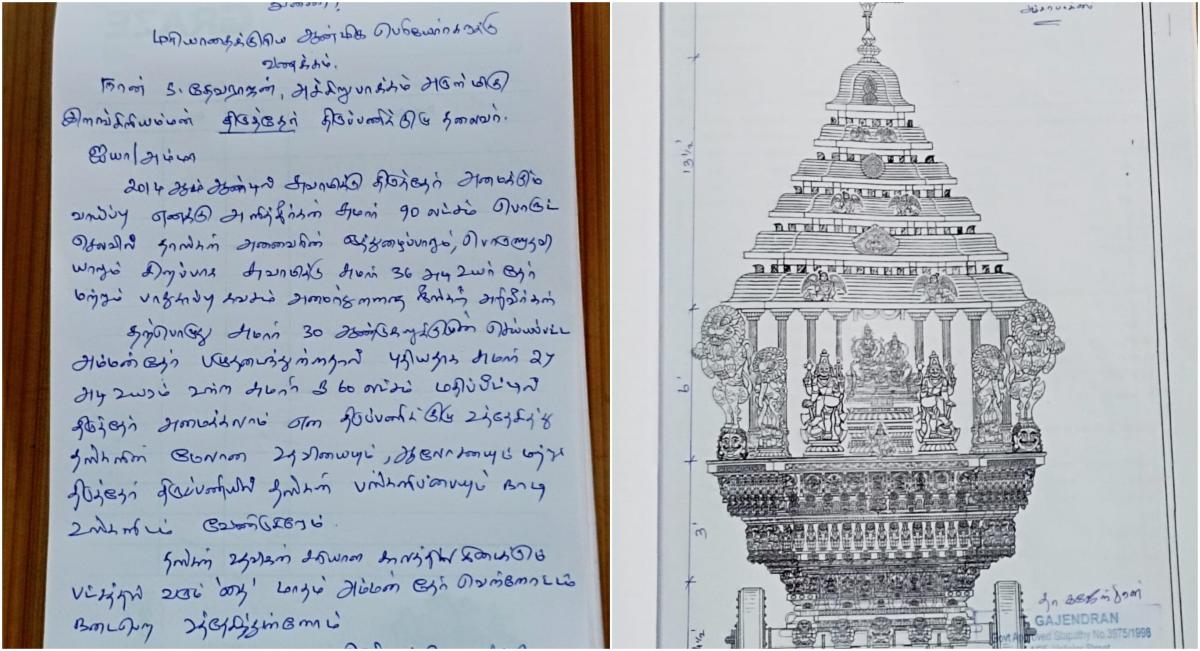 மரியாதைக்குரிய ஆன்மிக பெரியோர்களுக்கு
வணக்கம்.
நான் S. தேவராஜன், அச்சிறுபாக்கம் அருள்மிகு
இளங்கிளியம்மன் திருத்தேர் திருப்பணிக்குழு தலைவர்.
ஐயா/அம்மா
2014 ஆம் ஆண்டில் சுவாமிக்கு திருத்தேர் அமைக்கும்
வாய்ப்பு எனக்கு அளித்தீர்கள் சுமார் 90 லட்சம் பொருட்
செலவில் தாங்கள் அனைவரின் ஒத்துழைப்பாலும், பொருளுதவி
யாலும் சிறப்பாக சுவாமிக்கு சுமார் 36 அடி உயர தேர்
மற்றும் பாதுகாப்பு கவசம் அமைந்துள்ளதை நீங்கள் அறிவீர்கள்
தற்பொழுது சுமார் 30 ஆண்டுகளுக்குமுன் செய்யப்பட்ட
அம்மன்தேர் பழுதடைந்துள்ளதால் புதியதாக சுமார் 27
அடி உயரம் உள்ள சுமார் ரூ 60 லட்சம் மதிப்பீட்டில்
திருத்தேர் அமைக்கலாம் என திருப்பணிக்குழு உத்தேசித்து
தங்களின் மேலான உதவியையும், ஆலோசனையும் மற்றும்
திருத்தேர் திருப்பணியில் தங்கள் பங்களிப்பையும் நாடி
உங்களிடம் வேண்டுகிறோம்.
தங்கள் உதவிகள் சரியான காலத்தில் கிடைக்கும்
பட்சத்தில் வரும் 'தை' மாதம் அம்மன் தேர் வெள்ளோட்டம்
நடைபெற உத்தேசித்துள்ளோம்
13 1/2'
6'
3'
4 1/2'
தா கஜேந்திரன்
GAJENDRAN
Govt Approved Stapathy No.3975/1998